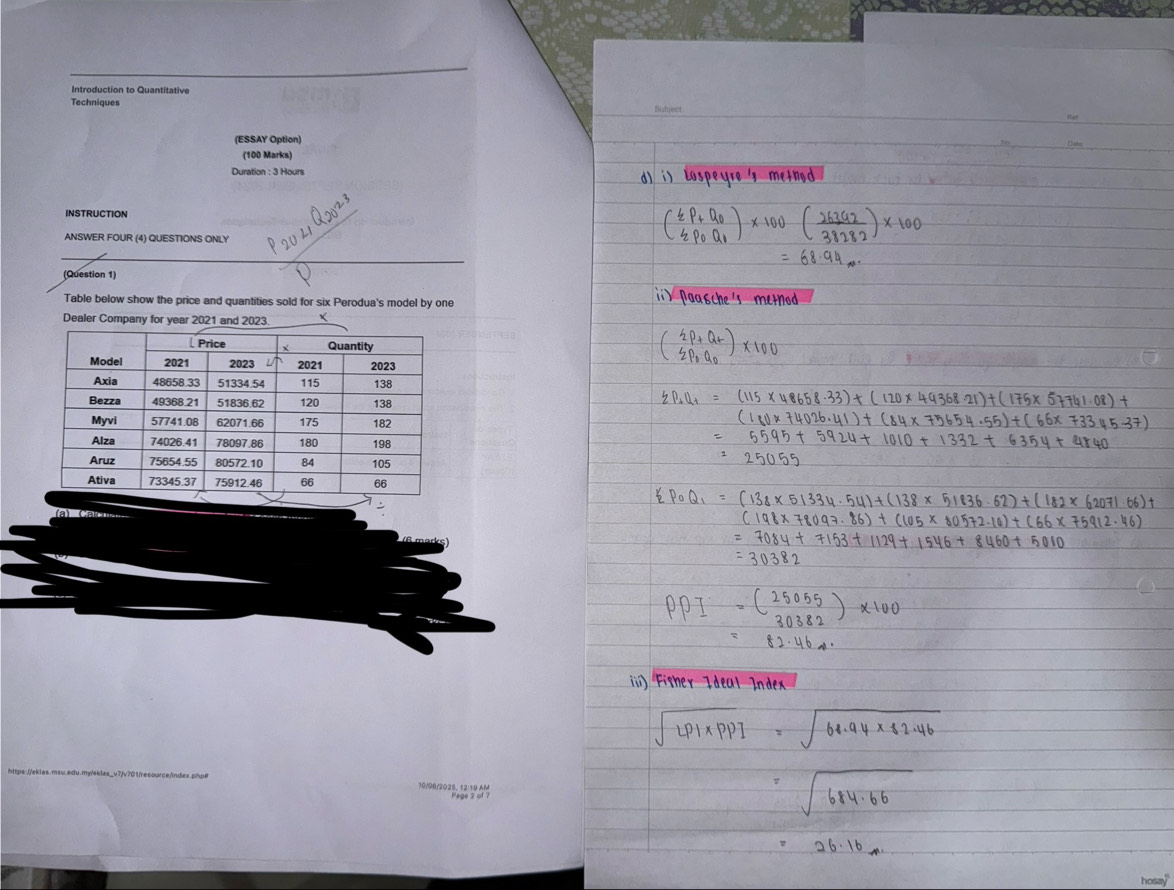 Introduction to Quantitative
Techniques
(ESSAY Option)
(100 Marks)
Duration : 3 Hours
INSTRUCTION
ANSWER FOUR (4) QUESTIONS ONLY
P 2021 Q2023
P
(Question 1)
Table below show the price and quantities sold for six Perodua's model by one
Dealer Company for year 2021 and 2023.
Model Price Quantity
2021 2023 2021 2023
Axia 48658.33 51334.54 115 138
Bezza 49368.21 51836.62 120 138
Myvi 57741.08 62071.66 175 182
Alza 74026.41 78097.86 180 198
Aruz 75654.55 80572.10 84 105
Ativa 73345.37 75912.46 66 66
(a)
(6 marks)
https://eklas.msu.edu.my/eklas_v7/v701/resource/index.php#
10/06/2025, 12:19 AM
Page 2 of 7
Subject
Ref
No
Date
d) i) Laspeyre's method
(ΣPt Q0 / ΣP0 Q0) × 100 (26392 / 38282) × 100
= 68.94
ii) Paasche's method
(ΣPt Qt / ΣP0 Q0) × 100
ΣP0Qt = (115 × 48658.33) + (120 × 49368.21) + (175 × 57741.08) +
(180 × 74026.41) + (84 × 75654.55) + (66 × 73345.37)
= 5595 + 5924 + 1010 + 1332 + 6354 + 4840
= 25055
ΣP0Q1 = (138 × 51334.54) + (138 × 51836.62) + (182 × 62071.66) +
(198 × 78097.86) + (105 × 80572.10) + (66 × 75912.46)
= 7084 + 7153 + 1129 + 1546 + 8460 + 5010
= 30382
PPI = (25055 / 30382) × 100
= 82.46
iii) Fisher Ideal Index
√LPI × PPI = √68.94 × 82.46
= √684.66
= 26.16
hosay